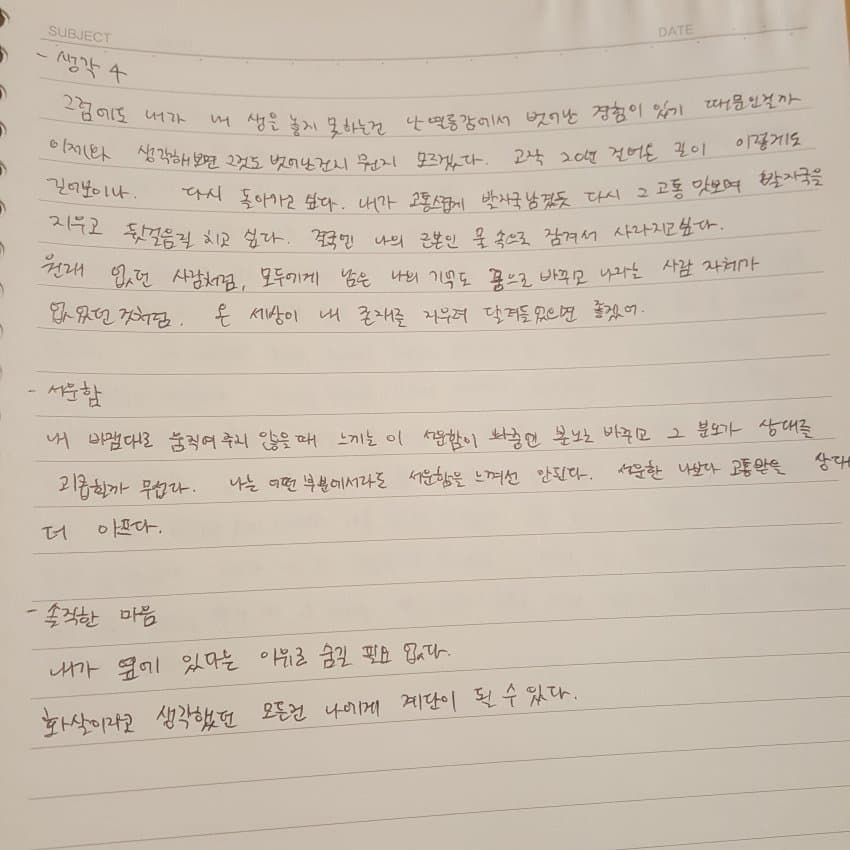 SUBJECT
DATE
- 생각 4
그럼에도 내가 내 생을 놓지 못하는건 난 열등감에서 벗어난 경험이 있기 때문인걸까
이제와 생각해보면 그것도 벗어난건지 뭔지 모르겠다. 고작 20년 걸어온 길이 이렇게도
길어보이나. 다시 돌아가고 싶다. 내가 고통스럽게 발자국 남겼듯 다시 그 고통 맛보며 발자국을
지우고 뒷걸음질 치고 싶다. 결국엔 나의 근본인 물 속으로 잠겨서 사라지고싶다.
원래 없던 사람처럼, 모두에게 남은 나의 기억도 꿈으로 바꾸고 나라는 사람 자체가
없었던것처럼. 온 세상이 내 존재를 지우려 달려들었으면 좋겠어.
- 서운함
내 바램대로 움직여 주지 않을때 느끼는 이 서운함이 짜증엔 분노로 바꾸고 그 분노가 상대를
괴롭힐까 무섭다. 나는 어떤 부분에서라도 서운함을 느껴선 안된다. 서운한 나보다 고통받을 상대
더 아프다.
- 솔직한 마음
내가 옆에 있다는 이유로 숨길 필요 없다.
화살이라고 생각했던 모든건 나에게 계단이 될 수 있다.